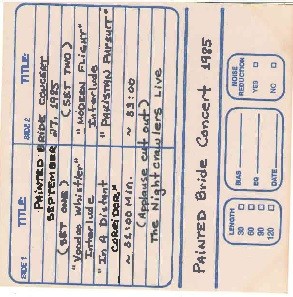 SIDE 1
TITLE:
SIDE 2
TITLE:
PAINTED BRIDE CONCERT
SEPTEMBER 27, 1985
(SET ONE)
(SET TWO)
"Voodoo Whistler"
"MODERN FLIGHT"
Interlude
Interlude
"In A Distant
CORRIDOR"
"PAKISTAN PURSUIT"
~ 32:00 Min.
~ 33:00
(Applause cut out)
The Nightcrawlers Live
PAINTED Bride Concert 1985
LENGTH
30
60
90
120
BIAS
EQ
DATE
NOISE
REDUCTION
YES
NO